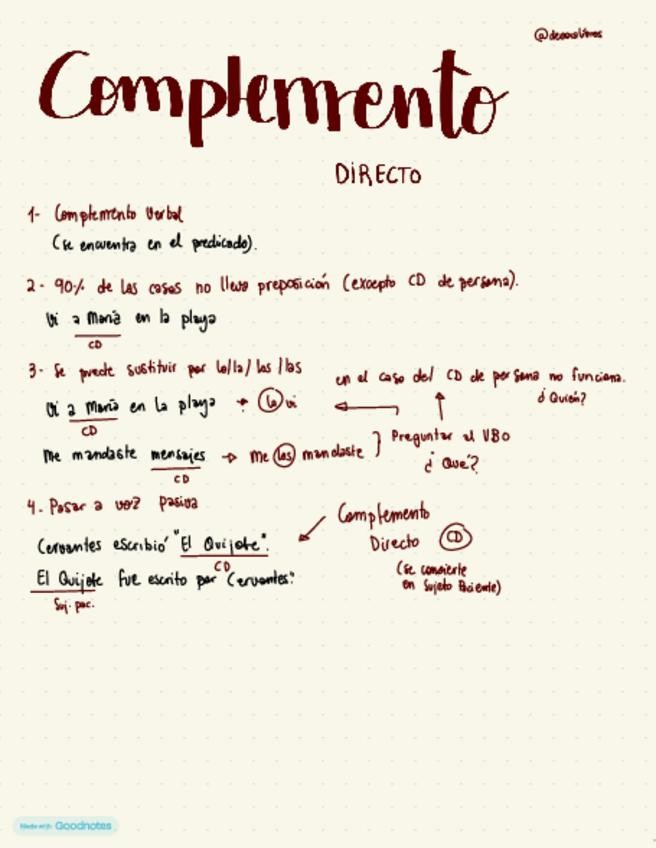 Complemento
DIRECTO
1- Complemento Verbal
(se encuentra en el predicado).
2- 90% de las casos no lleva preposición (excepto CD de persona).
Vi a María en la playa
CD
3- Se puede sustituir por lo/la/los/las
en el caso del CD de persona no funciona.
¿Quién?
Vi a María en la playa → la vi
CD
Preguntar al VBO
¿Qué?
Me mandaste mensajes → Me los mandaste
CD
4. Pasar a voz pasiva
Complemento
Directo CD
(se convierte
en Sujeto Paciente)
Cervantes escribió "El Quijote".
CD
El Quijote fue escrito por Cervantes."
Suj. pac.
Made with Goodnotes